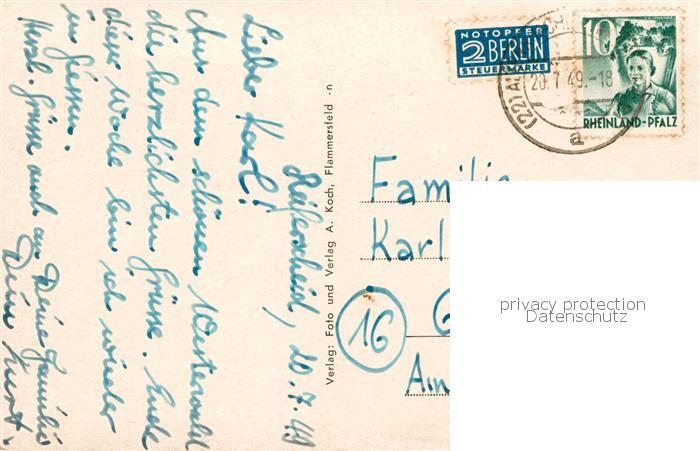 Reiferscheid, 20.7.49
Lieber Karl!
Aus dem schönen Westerwald
die herzlichsten Grüsse. Ende
diese Woche bin ich wieder
in Giessen.
Herzl. Grüsse auch an Deine Familie
Dein Kurt.
Verlag: Foto und Verlag A. Koch, Flammersfeld -n
NOTOPFER
2 BERLIN
STEUERMARKE
20.7.49.-18
a
10
RHEINLAND-PFALZ
Familie
Karl
16
privacy protection
Datenschutz